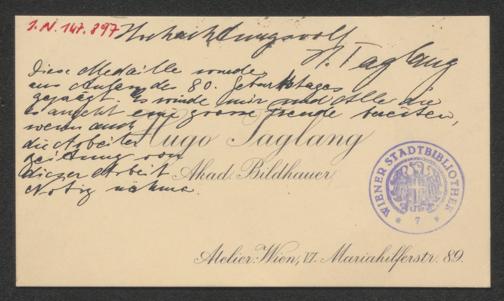 I.N. 147.897
Hochachtungsvoll
H. Taglang
Diese Medaille wurde
aus Anlass des 80. Geburtstages
geprägt. Es würde mir und Alle die
es angeht eine grosse Freude bereiten,
wenn auch
die Arbeiter
zeitung von
dieser Arbeit
Notiz nähme.
Hugo Taglang
Akad. Bildhauer
WIENER STADTBIBLIOTHEK
* 7 *
Atelier: Wien, VI. Mariahilferstr. 89.